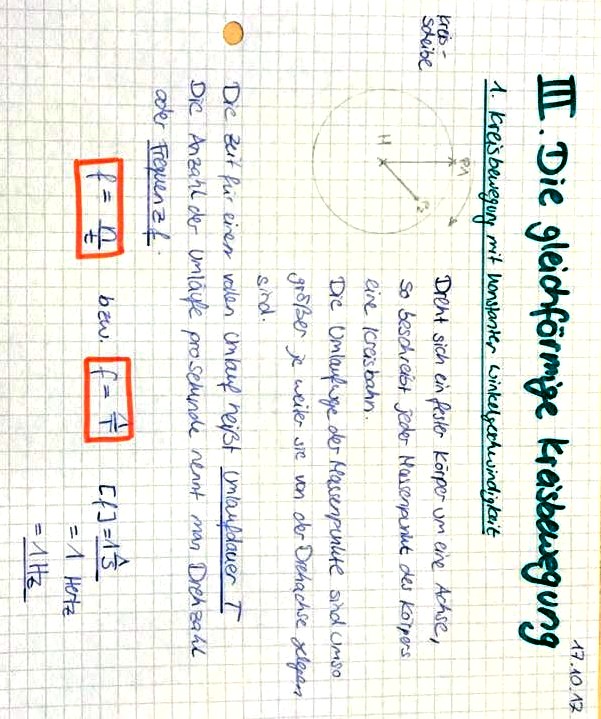 17.10.17
III. Die gleichförmige Kreisbewegung
1. Kreisbewegung mit konstanter Winkelgeschwindigkeit
Kreis-
scheibe
P1
P2
M
Dreht sich ein fester Körper um eine Achse,
so beschreibt jeder Massenpunkt des Körpers
eine Kreisbahn.
Die Umlaufwege der Massenpunkte sind umso
größer je weiter sie von der Drehachse gelegen
sind.
Die Zeit für einen vollen Umlauf heißt Umlaufdauer T
Die Anzahl der Umläufe pro Sekunde nennt man Drehzahl
oder Frequenz f.
f = n/t bzw. f = 1/T [f] = 1 1/s
= 1 Hertz
= 1 Hz